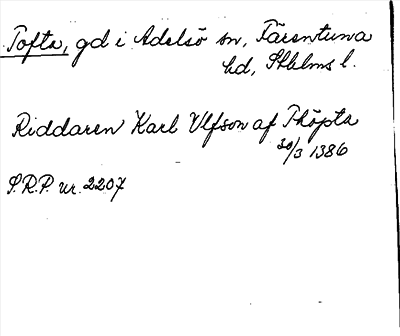 Tofta, gd i Adelsö sn, Färentuna
hd, Sthlms l.
Riddaren Karl Ulfson af Thöpta
30/3 1386
S.R.P. nr. 2207